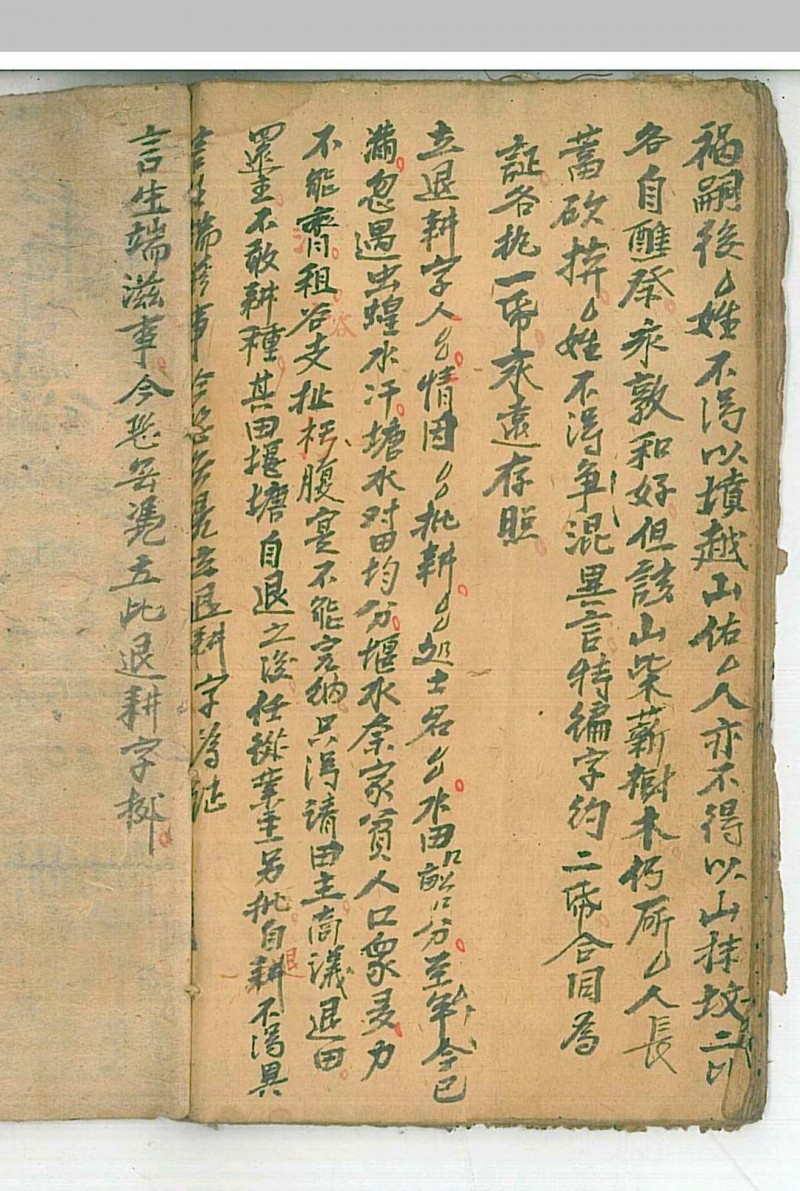 禍嗣後ム姓不得以墳越山佑ム人亦不得以山抹坟二比
各自醮祭永敦和好但該山柴薪樹木仍所ム人長
蓄砍拚ム姓不得争混異言特編字約二帋合同為
証各执一帋永遠存照
立退耕字人ムム情因ムム批耕ムム処土名ムム水田口畝口分至年今已
满忽遇虫蝗水汗塘水对田均分堰水奈家貧人口衆多力
不能齊租谷支扯枵腹寔不能完纳只得請田主啇議退田
罢主不敢耕種其田堰塘自退之後任從業主另批自耕不得異
言生端滋事今恐無凴立退耕字為証
言生端滋事今恐無凴立此退耕字